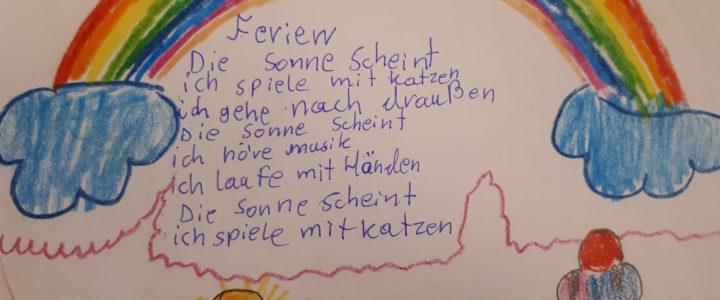 Ferien
Die sonne scheint
ich spiele mit katzen
ich gehe nach draußen
Die sonne scheint
ich höre musik
ich laufe mit Händen
Die sonne scheint
ich spiele mit katzen